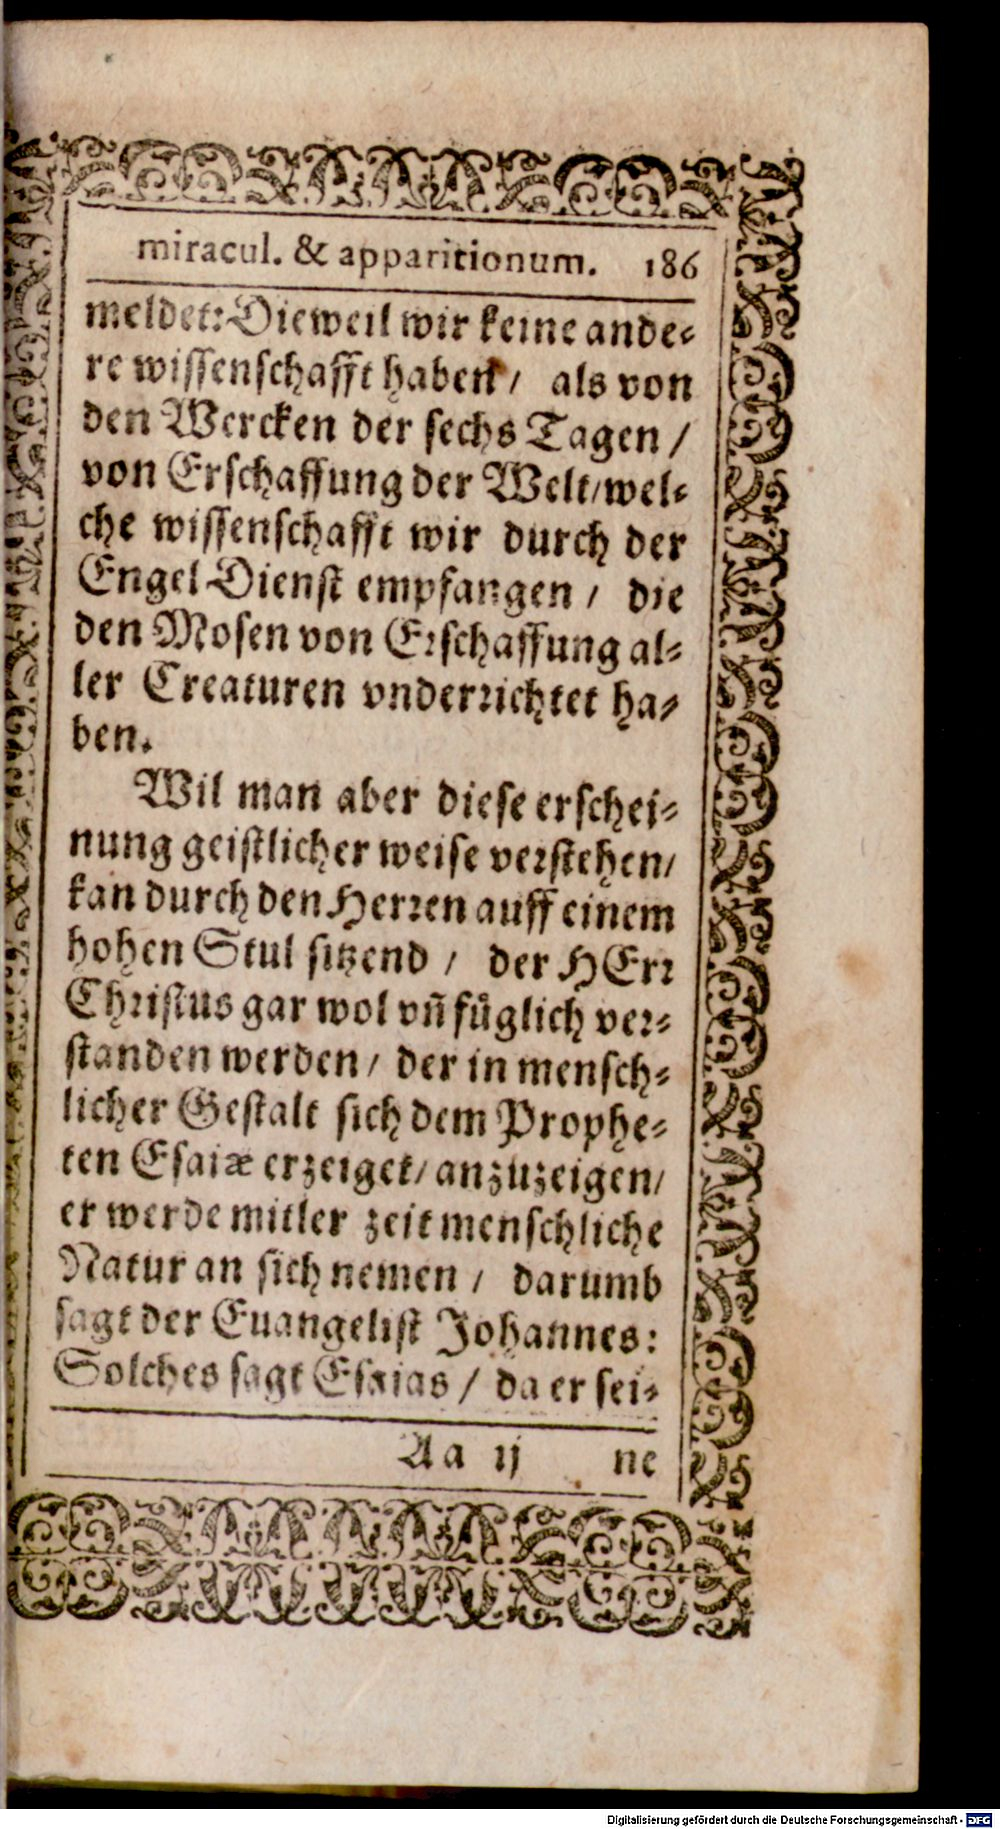 miracul. & apparitionum. 186
meldet: Dieweil wir keine ande-
re wissenschafft haben / als von
den Wercken der sechs Tagen /
von Erschaffung der Welt / wel-
che wissenschafft wir durch der
Engel Dienst empfangen / die
den Mosen von Erschaffung al-
ler Creaturen vnderrichtet ha-
ben.
Wil man aber diese erschei-
nung geistlicher weise verstehen /
kan durch den Herren auff einem
hohen Stul sitzend / der HErr
Christus gar wol vñ fuͤglich ver-
standen werden / der in mensch-
licher Gestalt sich dem Prophe-
ten Esaiæ erzeiget / anzuzeigen /
er werde mitler zeit menschliche
Natur an sich nemen / darumb
sagt der Euangelist Johannes:
Solches sagt Esaias / da er sei-
Aa ij ne
Digitalisierung gefördert durch die Deutsche Forschungsgemeinschaft - DFG